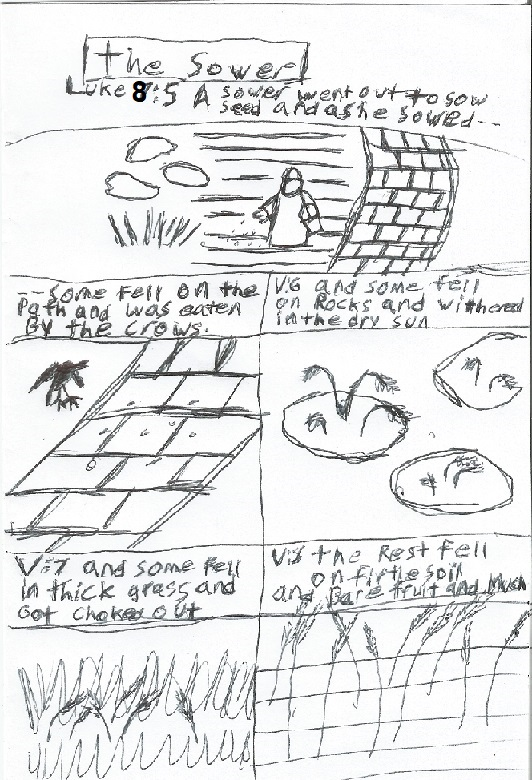 The Sower
Luke 8:5 A sower went out to sow
seed and as he sowed--
--some fell on the
Path and was eaten
By the crows.
V:6 and some fell
on Rocks and withered
in the dry sun
V:7 and some fell
in thick grass and
Got choked out
V:8 the Rest fell
on firtle soil
and Bare fruit and Much